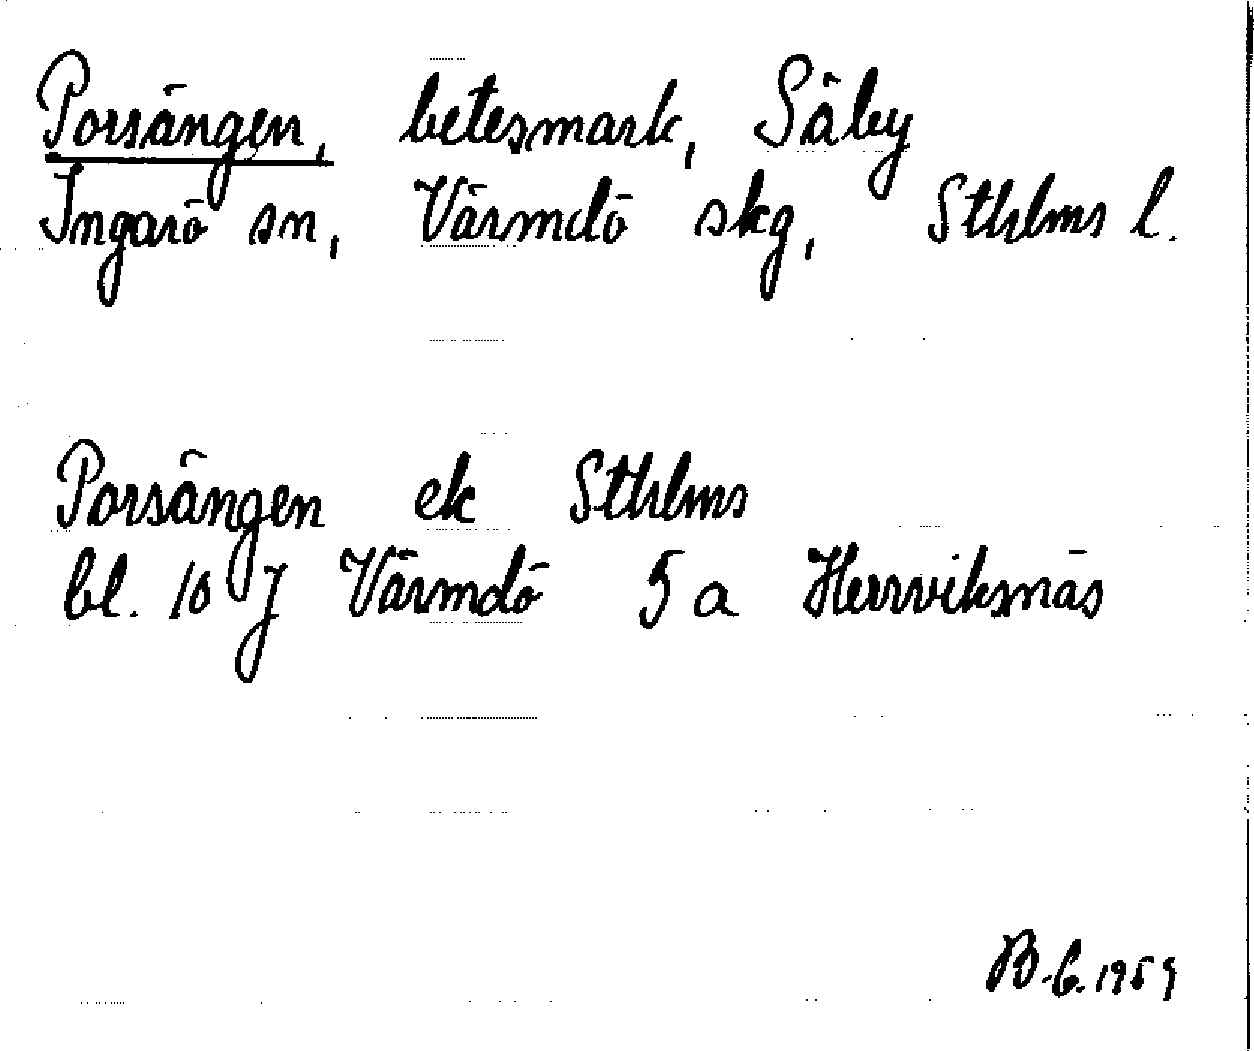 Porsängen, betesmark, Säby
Ingarö sn, Värmdö skg, Sthlms l.
Porsängen ek Sthlms
bl. 10 J Värmdö 5 a Herrviksnäs
B.C. 1959